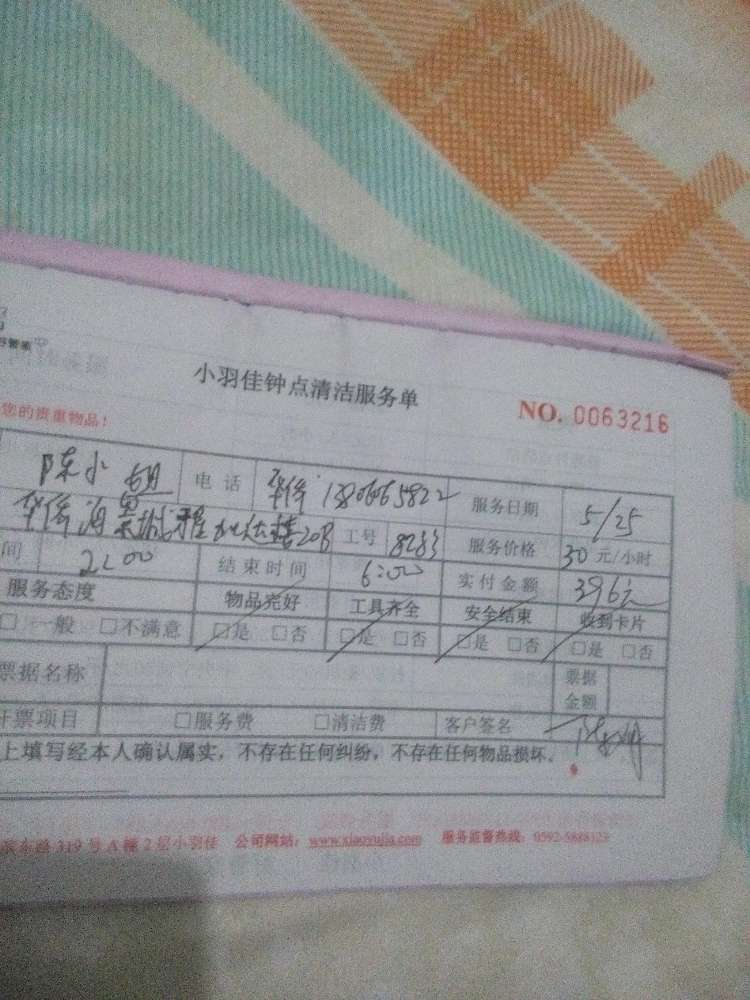 小羽佳钟点清洁服务单
NO. 0063216
您的贵重物品!
陈小姐 电话 服务日期 5/25
工号 服务价格 30元/小时
间 结束时间 6:00 实付金额 396元
服务态度 物品完好 工具齐全 安全结束 收到卡片
□一般 □不满意 □是 □否 □是 □否 □是 □否 □是 □否
票据名称 票据金额
开票项目 □服务费 □清洁费 客户签名
上填写经本人确认属实，不存在任何纠纷，不存在任何物品损坏。
东路319号A幢2层小羽佳 公司网站：www.xiaoyujia.com 服务监督热线：